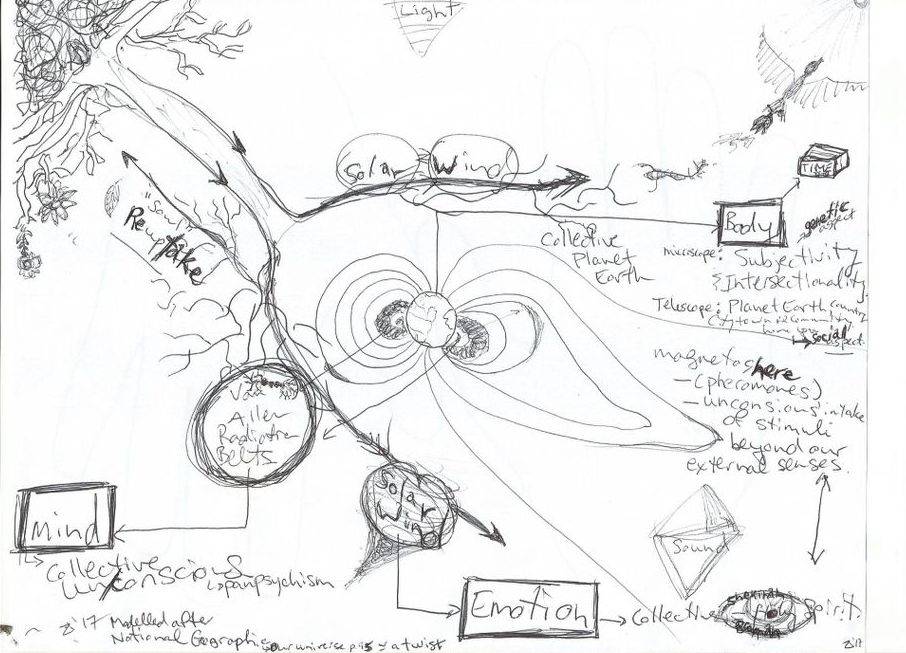 Light
Solar Wind
TIME
Body
genetic
aspect
microscope: Subjectivity
& Intersectionality
Telescope: Planet Earth country
City town community
social aspect
Collective
Planet
Earth
"Soul"
Reuptake
magnetoshere
- (pheromones)
- unconsious intake
of stimuli
beyond our
external senses.
Van
Allen
Radiation
Belts
Solar
Wind
Sound
Mind
Collective
Unconscious
panpsychism
Emotion
Collective
Spirit.
Shekinah
Z '17 Modelled after
National Geographic
our universe
a twist
Z'17